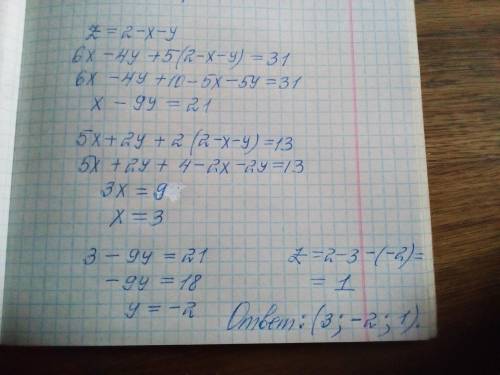 z = 2-x-y
6x -4y +5(2-x-y) = 31
6x -4y +10 -5x-5y = 31
x - 9y = 21
5x+2y + 2 (2-x-y) = 13
5x +2y + 4-2x-2y = 13
3x = 9
x = 3
3 - 9y = 21
-9y = 18
y = -2
z = 2-3-(-2) =
= 1
Ответ: (3; -2; 1).